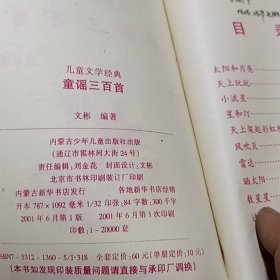 儿童文学经典
童谣三百首
文彬 编著
内蒙古少年儿童出版社出版
(通辽市霍林河大街24号)
责任编辑:刘金花 封面设计:文彬
北京市书林印刷装订厂印刷
内蒙古新华书店发行 各地新华书店经销
开本 787×1092 毫米 1/32 印张:84 字数:300 千字
2001年6月第1版 2001年6月第1次印刷
印数:1-20000 套
SBN7-5312-1360-5/I·318 全套定价:60元(单册定价:10元)
(本书如发现印装质量问题请直接与承印厂调换)
目 录
太阳和月亮
天上玩玩
小流星
星和灯
天上架起彩虹
风吹天
雷达
晒太阳
数星星